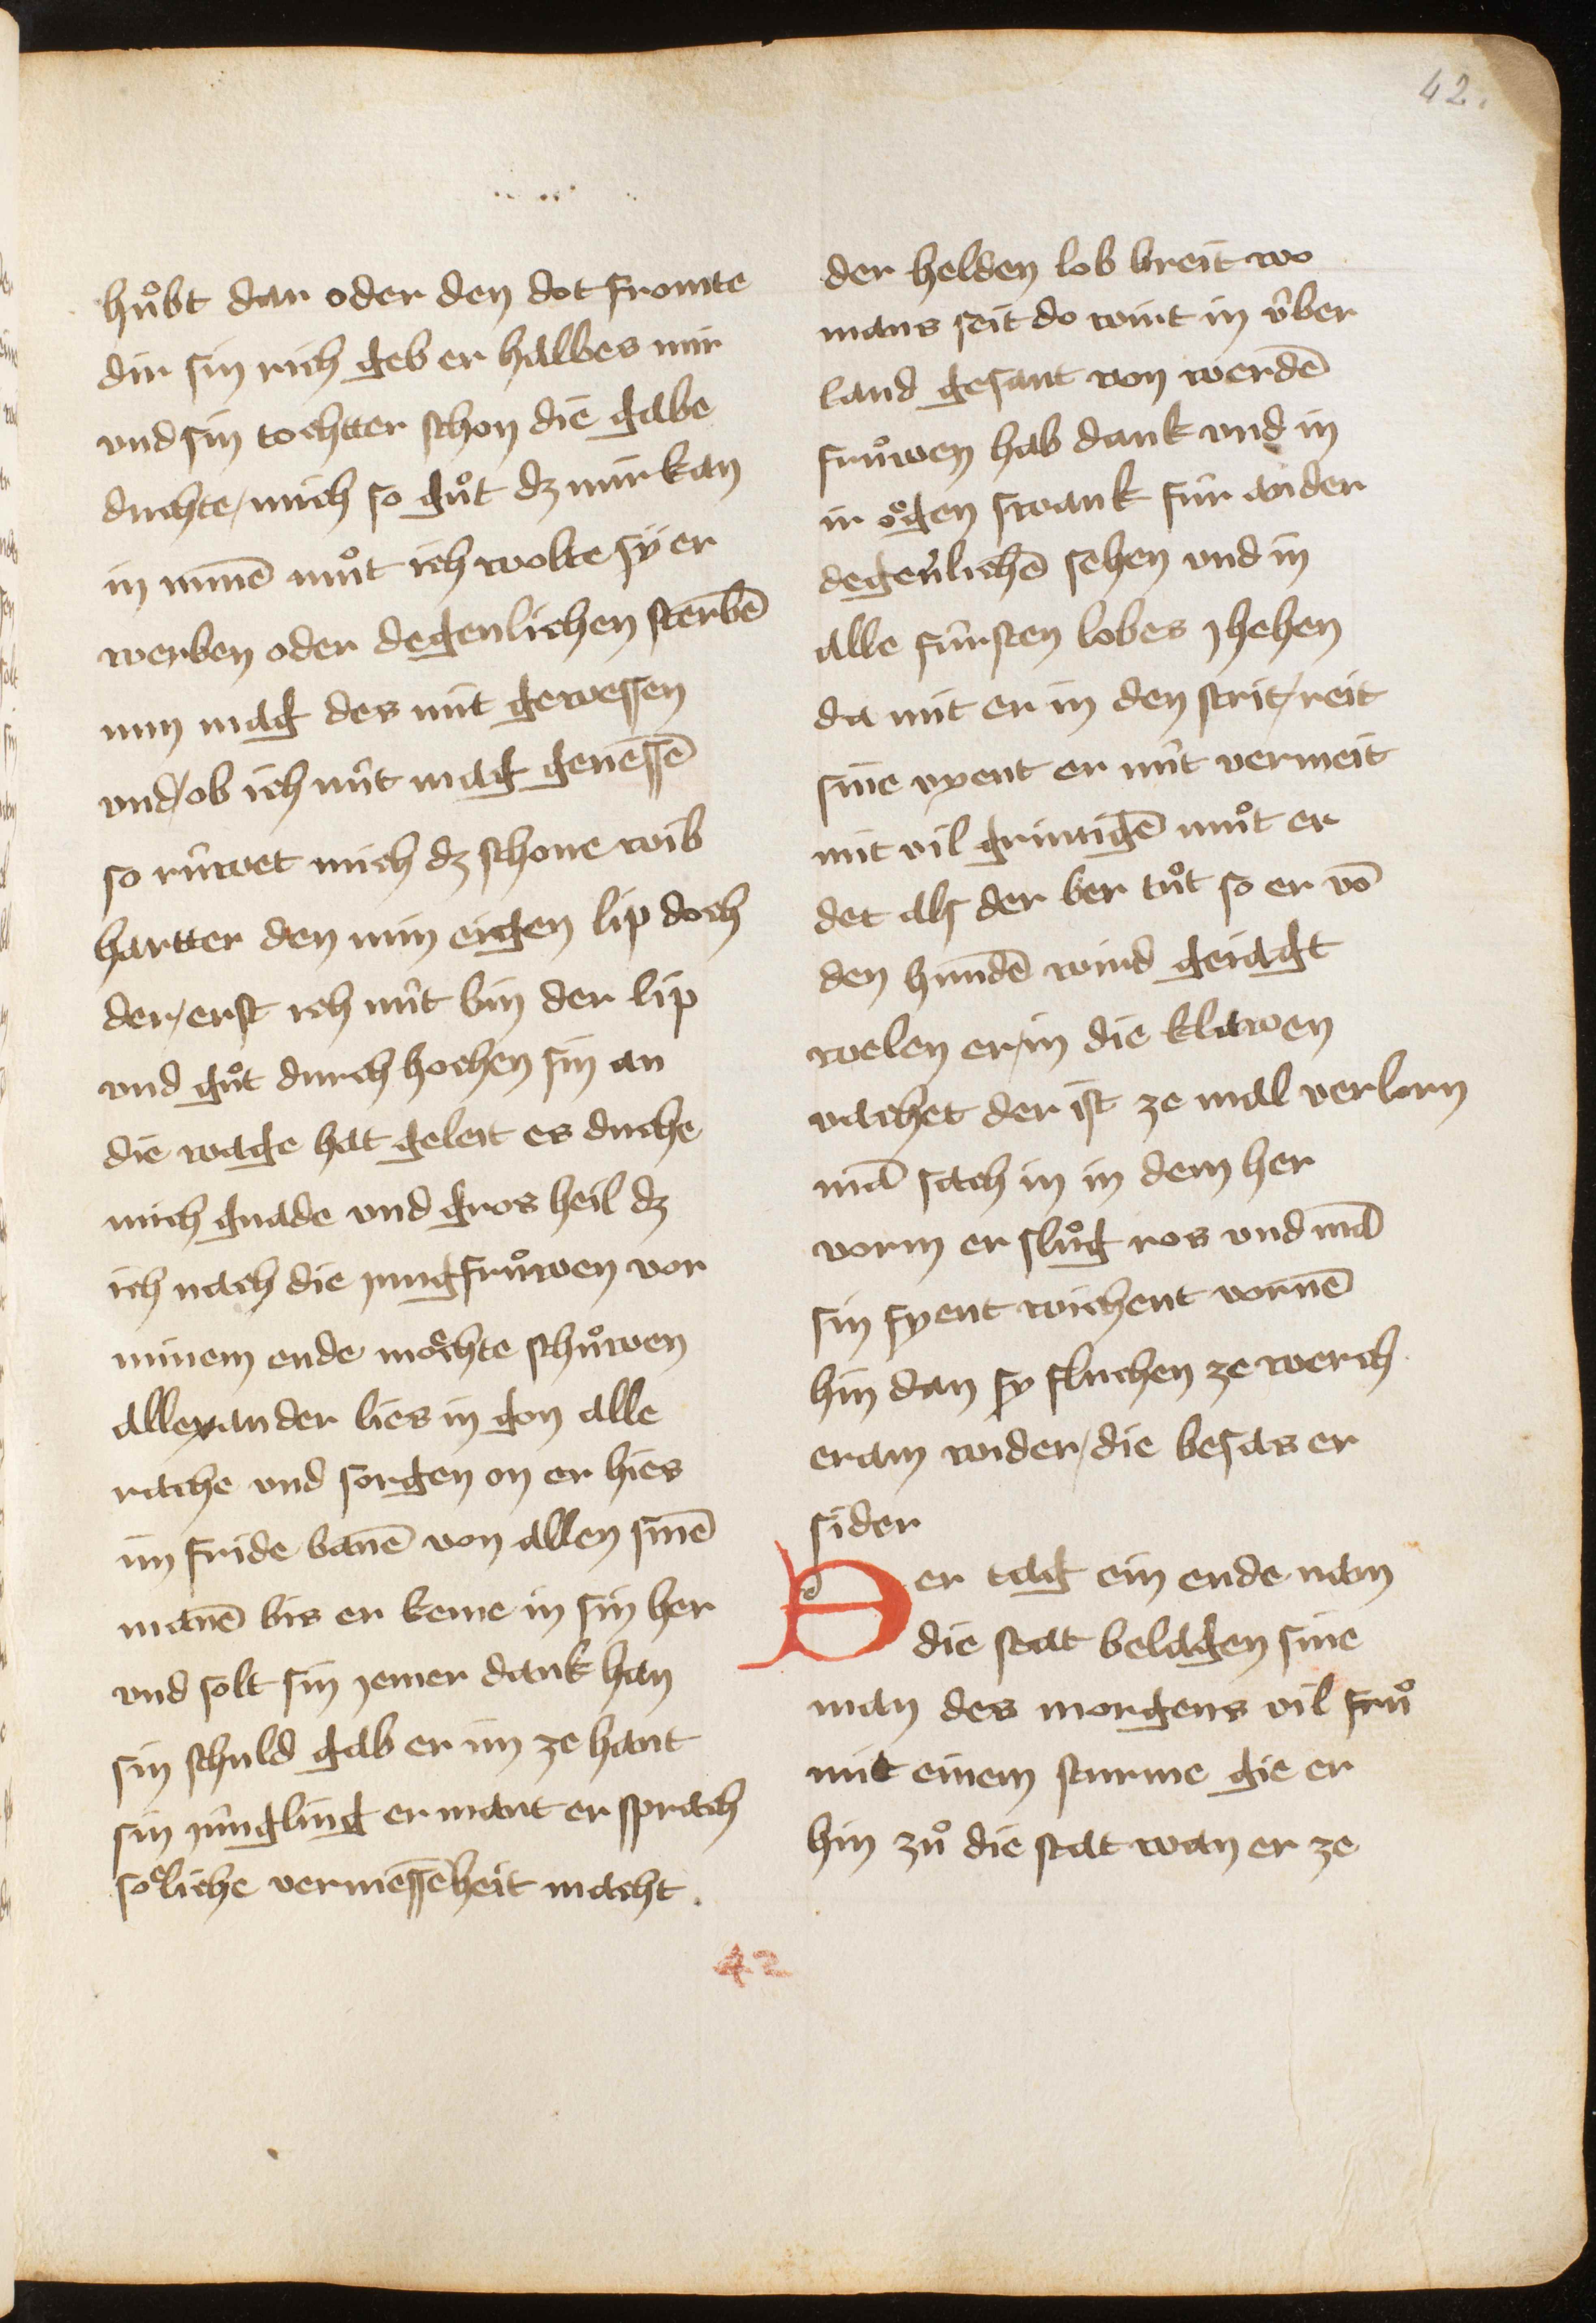 42.
huͦbt dar oder den dot fromte
dir sin rich geb er halbes mir
vnd sin tochtter schon die gabe
duchte mich so guͦt dz mir kan
in minē muͦt ich wolte sÿ er
werben oder degenlichen sterbē
nun mag des nit gewessen
vnd ob ich nüt mag genessē
so rüwet mich dz schone wib
hartter den min eigen lip doch
der erst ich nüt bin der lip
vnd guͦt durch hochen sin an
die wage hat geleit es duche
mich gnade vnd gros heil dz
ich nach die jungfruͦwen vor
minem ende moͤchte schuͦwen
allexander lies in gon alle
rache vnd sorgen on er hies
im fride banē von allen sinē
manē bis er keme in sin her
vnd solt sin jemer dank han
sin schuld gab er im ze hant
sin jüngling er mant er sprach
soͤliche vermessēheit macht
der helden lob breit wo
mans seit do wirt in v̈ber
land gesant von werdē
fruͦwen hab dank vnd in
ir oͤgen swank für ander
degenlichē sehen vnd in
alle fürsten lobes jhehen
da mit er in den strit reit
sine vyent er nüt vermeit
mit vil grimigē muͦt er
det als der ber tuͦt so er vō
den hundē wird geiagt
welen er in die klawen
vachet der ist ze mal verlorn
mā sach in in dem her
vorm er sluͦg ros vnd mā
sin fyent wichent vornē
hin dan sy fluchen ze werch
eram wider die besas er
sider
Der tag ein ende nam
die stat belagen sine
man des morgens vil fruͦ
mit einem sturme gie er
hin zuͦ die stat wan er ze
42